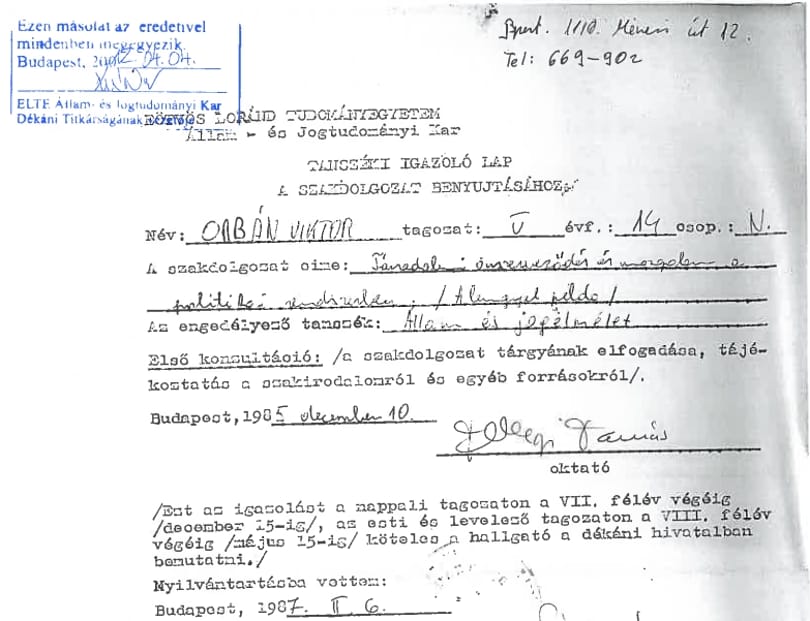 Ezen másolat az eredetivel
mindenben megegyezik.
Budapest, 2012 04.04.
ELTE Állam- és Jogtudományi Kar
Dékáni Titkárságának vezetője
Bpest. 1110. Ménesi út 12.
Tel: 669-902
EÖTVÖS LORÁND TUDOMÁNYEGYETEM
Állam - és Jogtudományi Kar
TANSZÉKI IGAZOLÓ LAP
A SZAKDOLGOZAT BENYUJTÁSÁHOZ
Név: ORBÁN VIKTOR tagozat: V évf.: 14 csop.: N.
A szakdolgozat címe: Társadalmi önszerveződés és mozgalom a
politikai rendszerben. /A lengyel példa/
Az engedélyező tanszék: Állam és jogelmélet
Első konsultáció: /a szakdolgozat tárgyának elfogadása, tájé-
koztatás a szakirodalomról és egyéb forrásokról/.
Budapest, 1985 december 10.
Tamás
oktató
/Ezt az igazolást a nappali tagozaton a VII. félév végéig
/december 15-ig/, az esti és levelező tagozaton a VIII. félév
végéig /május 15-ig/ köteles a hallgató a dékáni hivatalban
bemutatni./
Nyilvántartásba vettem:
Budapest, 1987. II. 6.